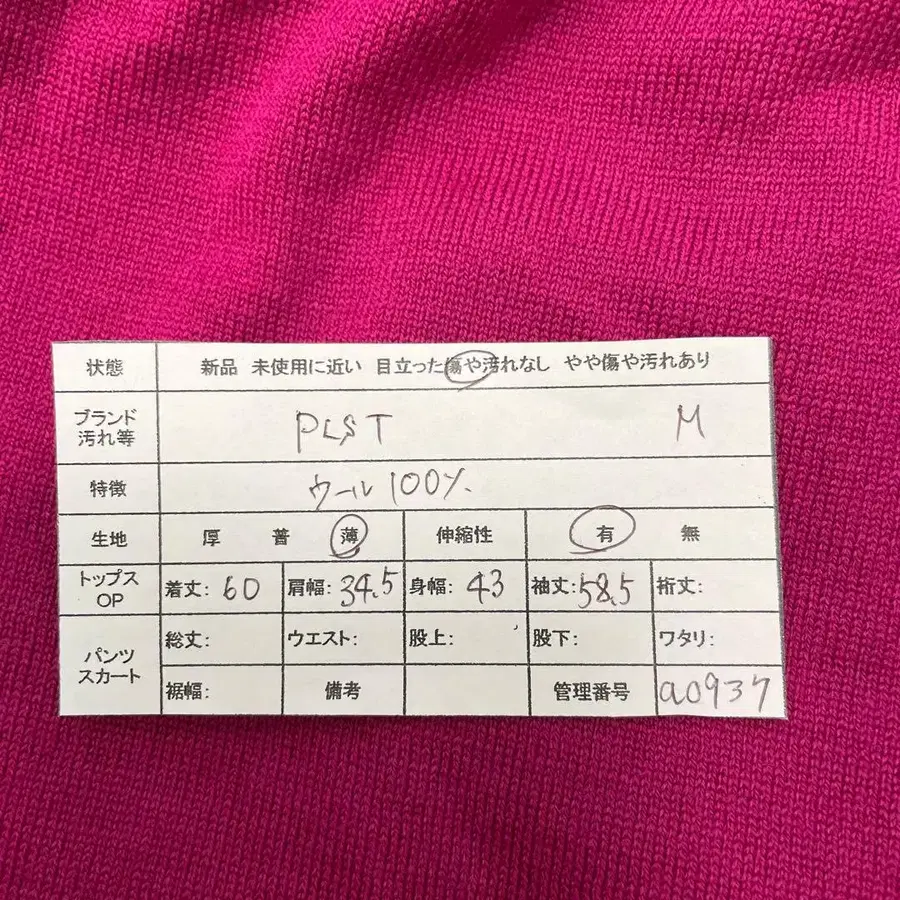 状態 新品 未使用に近い 目立った傷や汚れなし やや傷や汚れあり
ブランド 汚れ等 PLST M
特徴 ウール100%
生地 厚 普 薄 伸縮性 有 無
トップス OP 着丈: 60 肩幅: 34.5 身幅: 43 袖丈: 58.5 裄丈:
パンツ スカート 総丈: ウエスト: 股上: 股下: ワタリ:
裾幅: 備考 管理番号 a0937